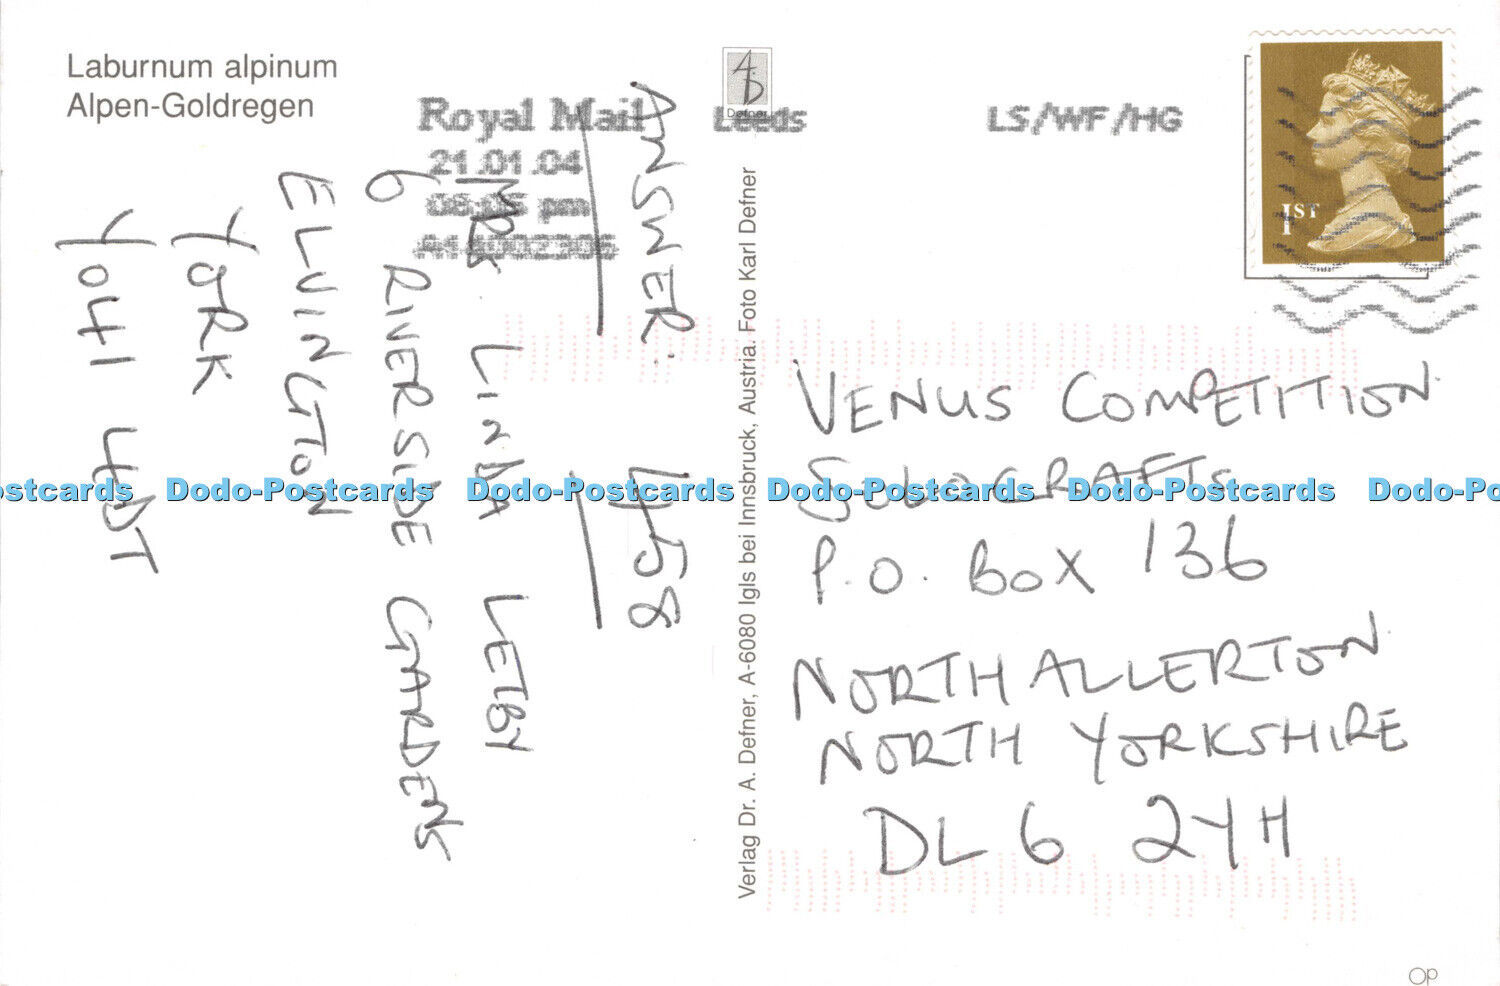 Laburnum alpinum
Alpen-Goldregen
Royal Mail
21.01.04
pm
Leeds
LS/WF/HG
Defner
1ST
ANSWER: 458
MRS. LINDA LETBY
6 RIVERSIDE GARDENS
ELVINGTON
YORK
YO41 4DT
Verlag Dr. A. Defner, A-6080 Igls bei Innsbruck, Austria. Foto Karl Defner
VENUS COMPETITION
SOLOCRAFTS
P.O. BOX 136
NORTHALLERTON
NORTH YORKSHIRE
DL6 2YH
Dodo-Postcards Dodo-Postcards Dodo-Postcards Dodo-Postcards
Op